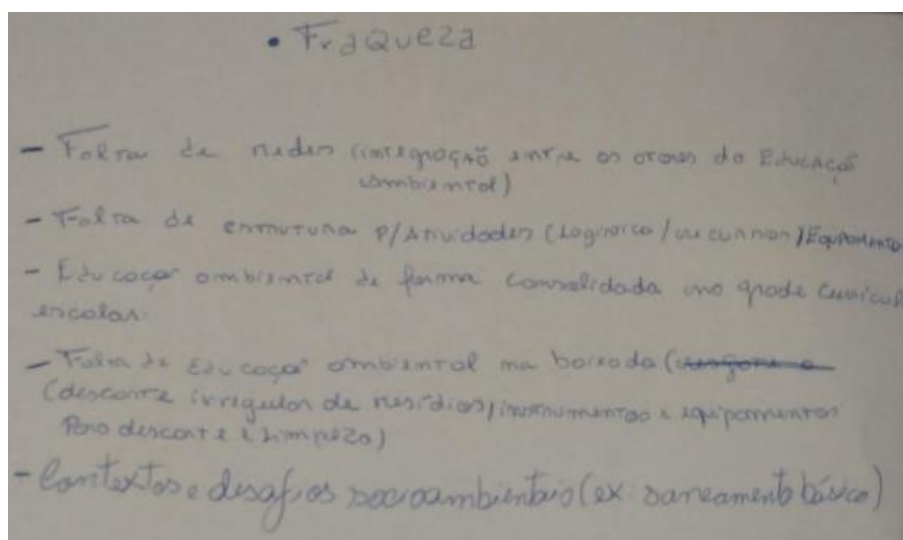 • Fraqueza
- Falta de redes (integração entre os orgãos da Educação
ambiental)
- Falta de estrutura p/Atividades (Logística/recursos/Equipamento
- Educaçao ambiental de forma consolidada na grade curricul
escolar.
- Falta de Educaçao ambiental na baixada (
(descarte irregular de resídios/instrumentos e equipamentos
Para descarte e Limpeza)
- Contextos e desafios socioambientais (ex: saneamento básico)